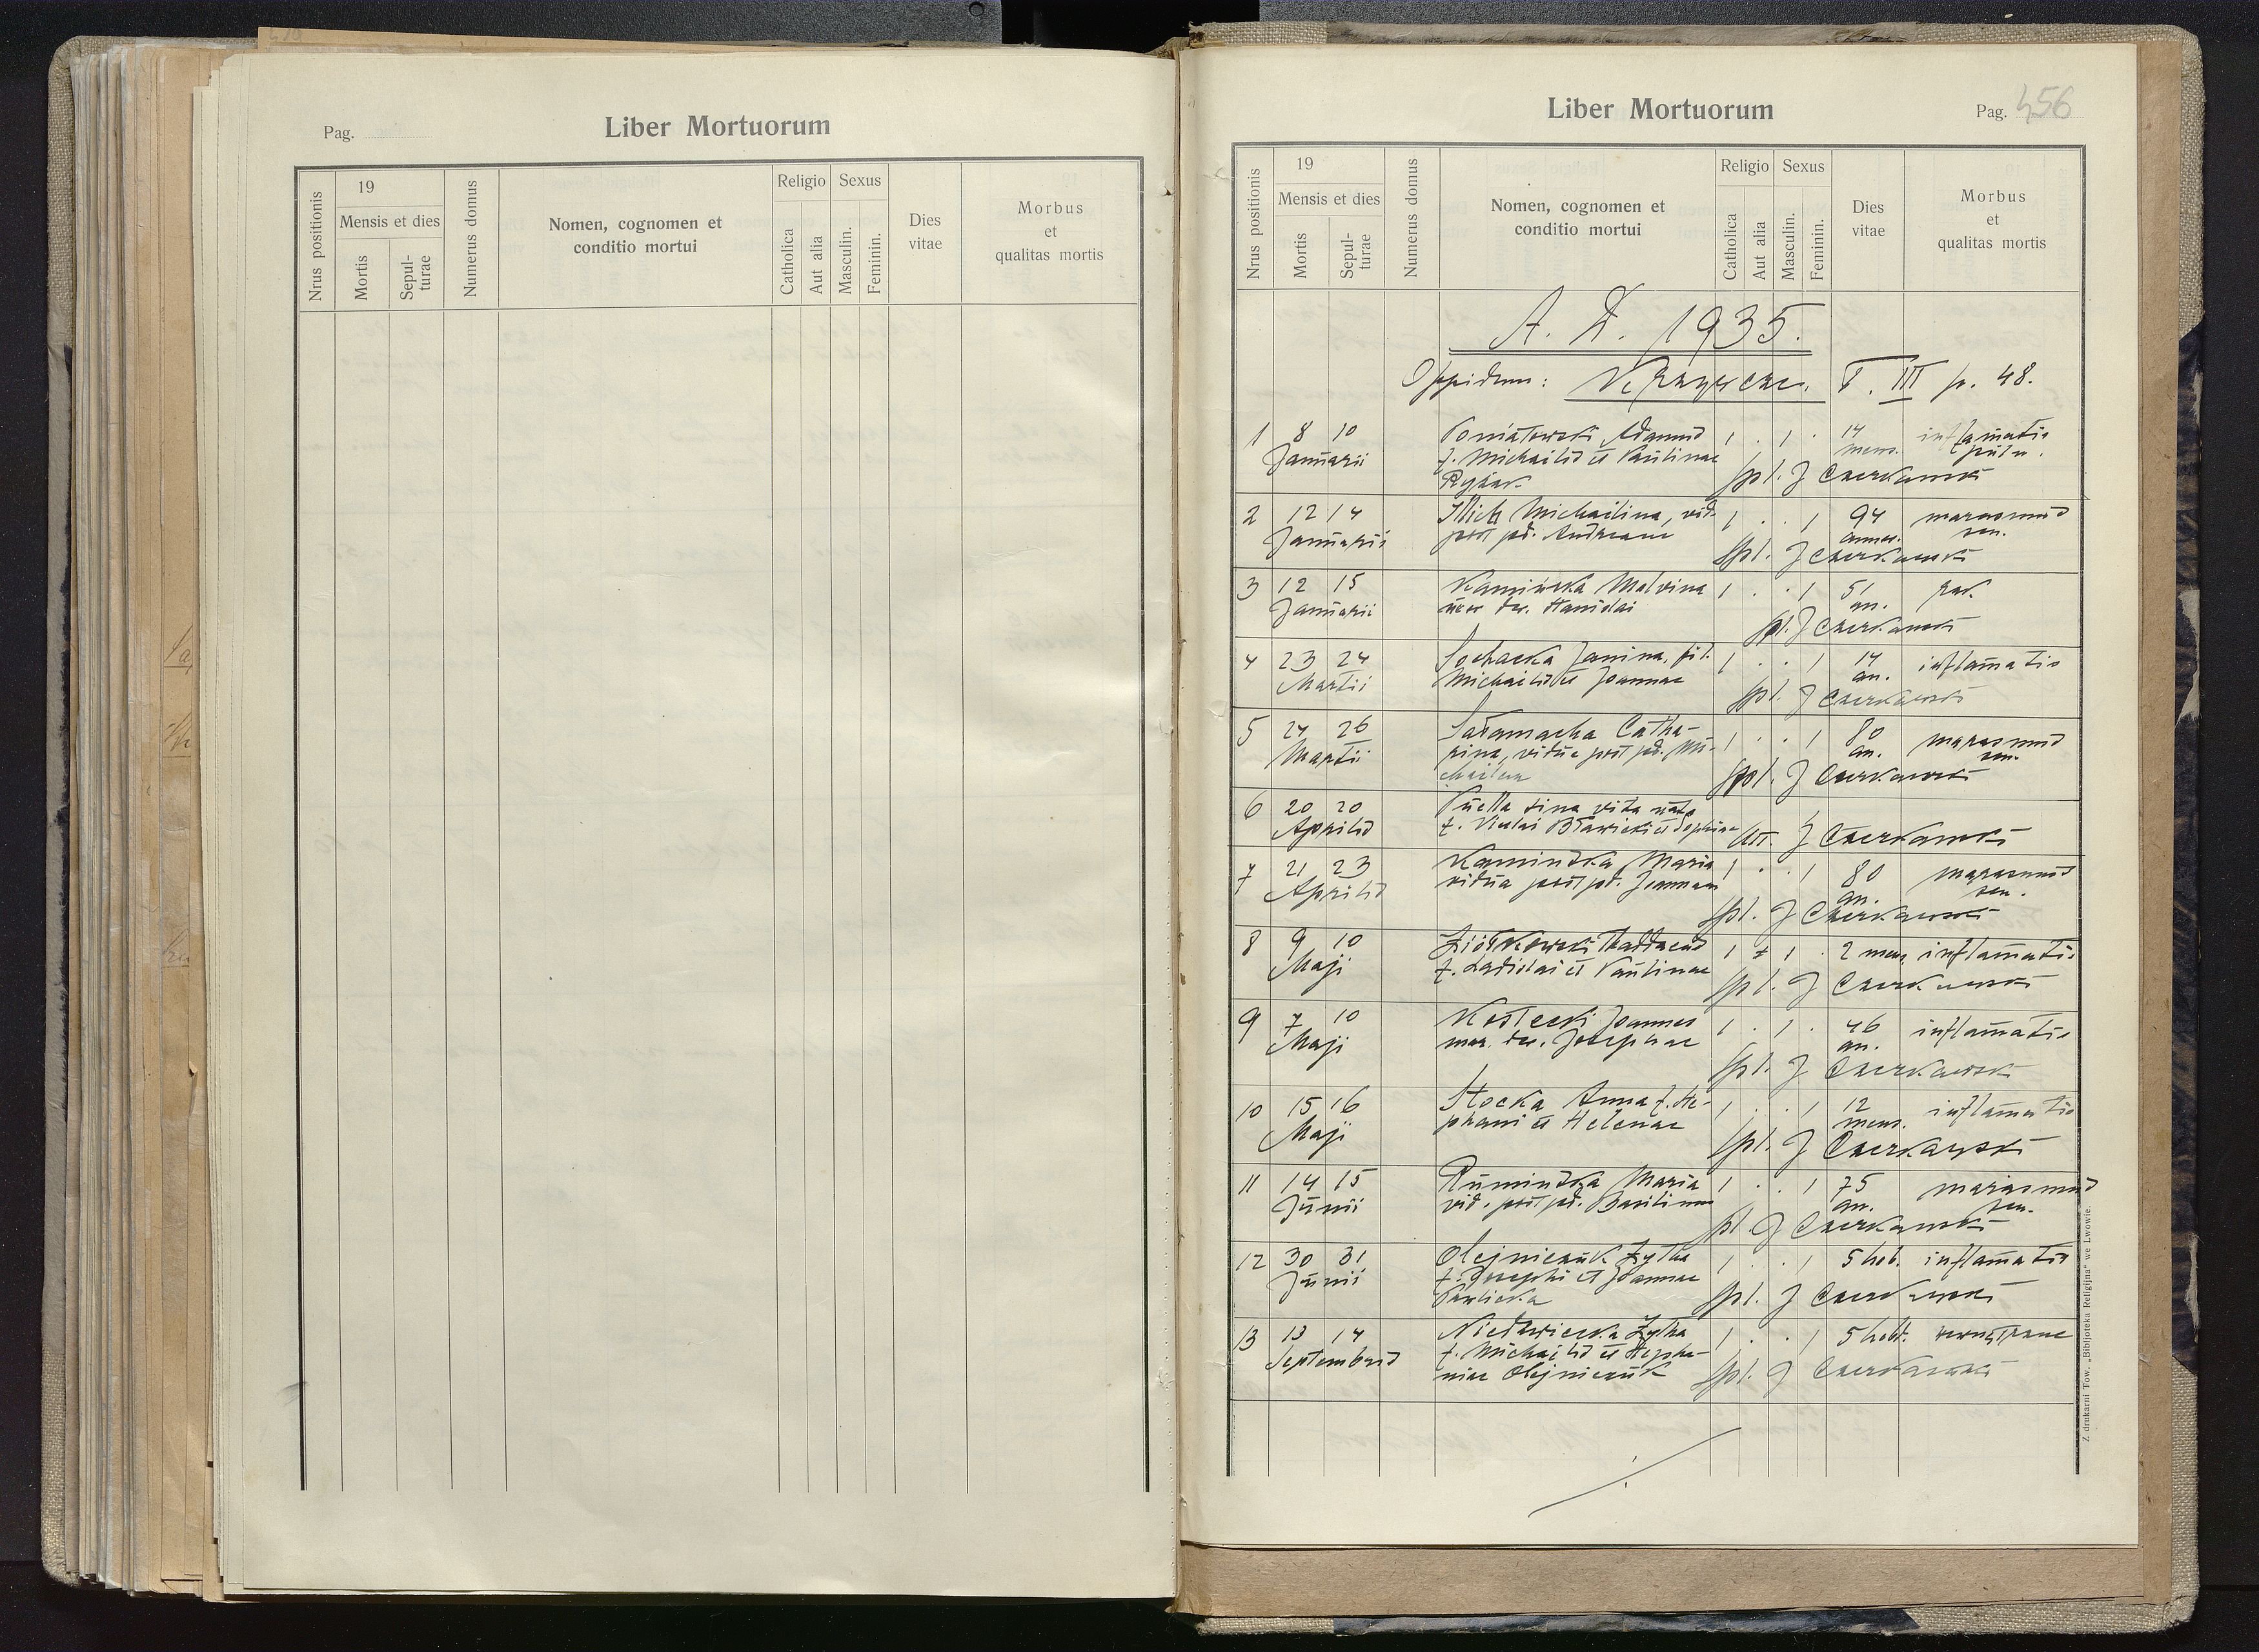 Pag.
Liber Mortuorum
Nrus positionis
19
Mensis et dies
Mortis
Sepul-
turae
Numerus domus
Nomen, cognomen et
conditio mortui
Religio
Catholica
Aut alia
Sexus
Masculin.
Feminin.
Dies
vitae
Morbus
et
qualitas mortis
Liber Mortuorum
Pag. 456
Nrus positionis
19
Mensis et dies
Mortis
Sepul-
turae
Numerus domus
Nomen, cognomen et
conditio mortui
Religio
Catholica
Aut alia
Sexus
Masculin.
Feminin.
Dies
vitae
Morbus
et
qualitas mortis
A. D. 1935.
Oppidum: T. III p. 48.
1 8 10 Poniatowski Adamus 1 . 1 . 14 inflamatio
Januarii f. Michaelis et Paulinae mens. pulm.
Rybak spl. J Czerkawski
2 12 14 Michailina, vid. 1 . . 1 94 marasmus
Januarii post pd. Andream annor. sen.
spl. J Czerkawski
3 12 15 Kamińska Malvina 1 . . 1 51 rak.
Januarii uxor der. Stanislai an.
spl. J Czerkawski
4 23 24 Sochacka Janina, fil. 1 . . 1 14 inflamatio
Martii Michaelis et Joannae an.
spl. J Czerkawski
5 24 26 Sałamacha Catha- 1 . . 1 80 marasmus
Martii rina, vidua post pd. Mi- an. sen.
chailem spl. J Czerkawski
6 20 20 Puella sine vita nata
Aprilis f. Nicolai et Sophiae J Czerkawski
7 21 23 Kamińska Maria 1 . . 1 80 marasmus
Aprilis vidua post pd. Joannem an. sen.
spl. J Czerkawski
8 9 10 Ziółkowski Thaddaeus 1 . 1 . 2 mens. inflamatio
Maji f. Ladislai et Paulinae
spl. J Czerkawski
9 7 10 Kostecki Joannes 1 . 1 . 46 inflamatio
Maji mar. der. Josephae an.
spl. J Czerkawski
10 15 16 Stocka Anna f. Ste- 1 . . 1 12 inflamatio
Maji phani et Helenae mens.
spl. J Czerkawski
11 14 15 Rumińska Maria 1 . . 1 75 marasmus
Junii vid. post pd. Basilium an. sen.
spl. J Czerkawski
12 30 31 Olejniczuk Zytha 1 . . 1 5 heb. inflamatio
Junii f. Josephi et Joannae
Pawlicka spl. J Czerkawski
13 13 14 Niedźwiecka Zytha 1 . . 1 5 hebd.
Septembris f. Michaelis et Stepha-
niae Olejniczuk spl. J Czerkawski
Z drukarni Tow. „Bibljoteka Religijna" we Lwowie.